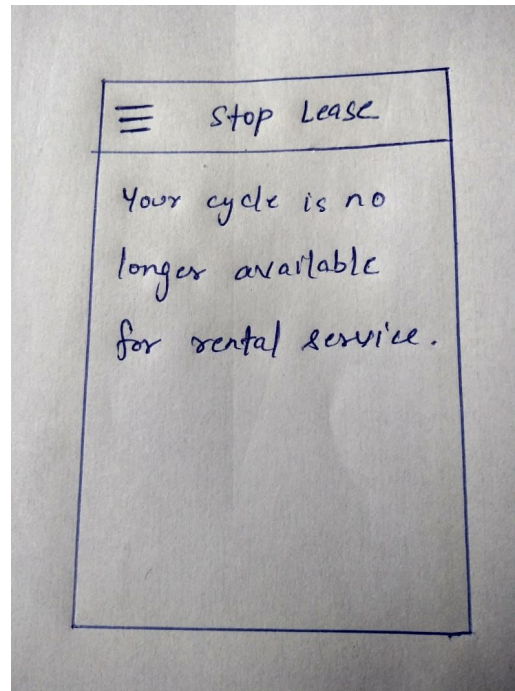 Stop Lease
Your cycle is no
longer available
for rental service.